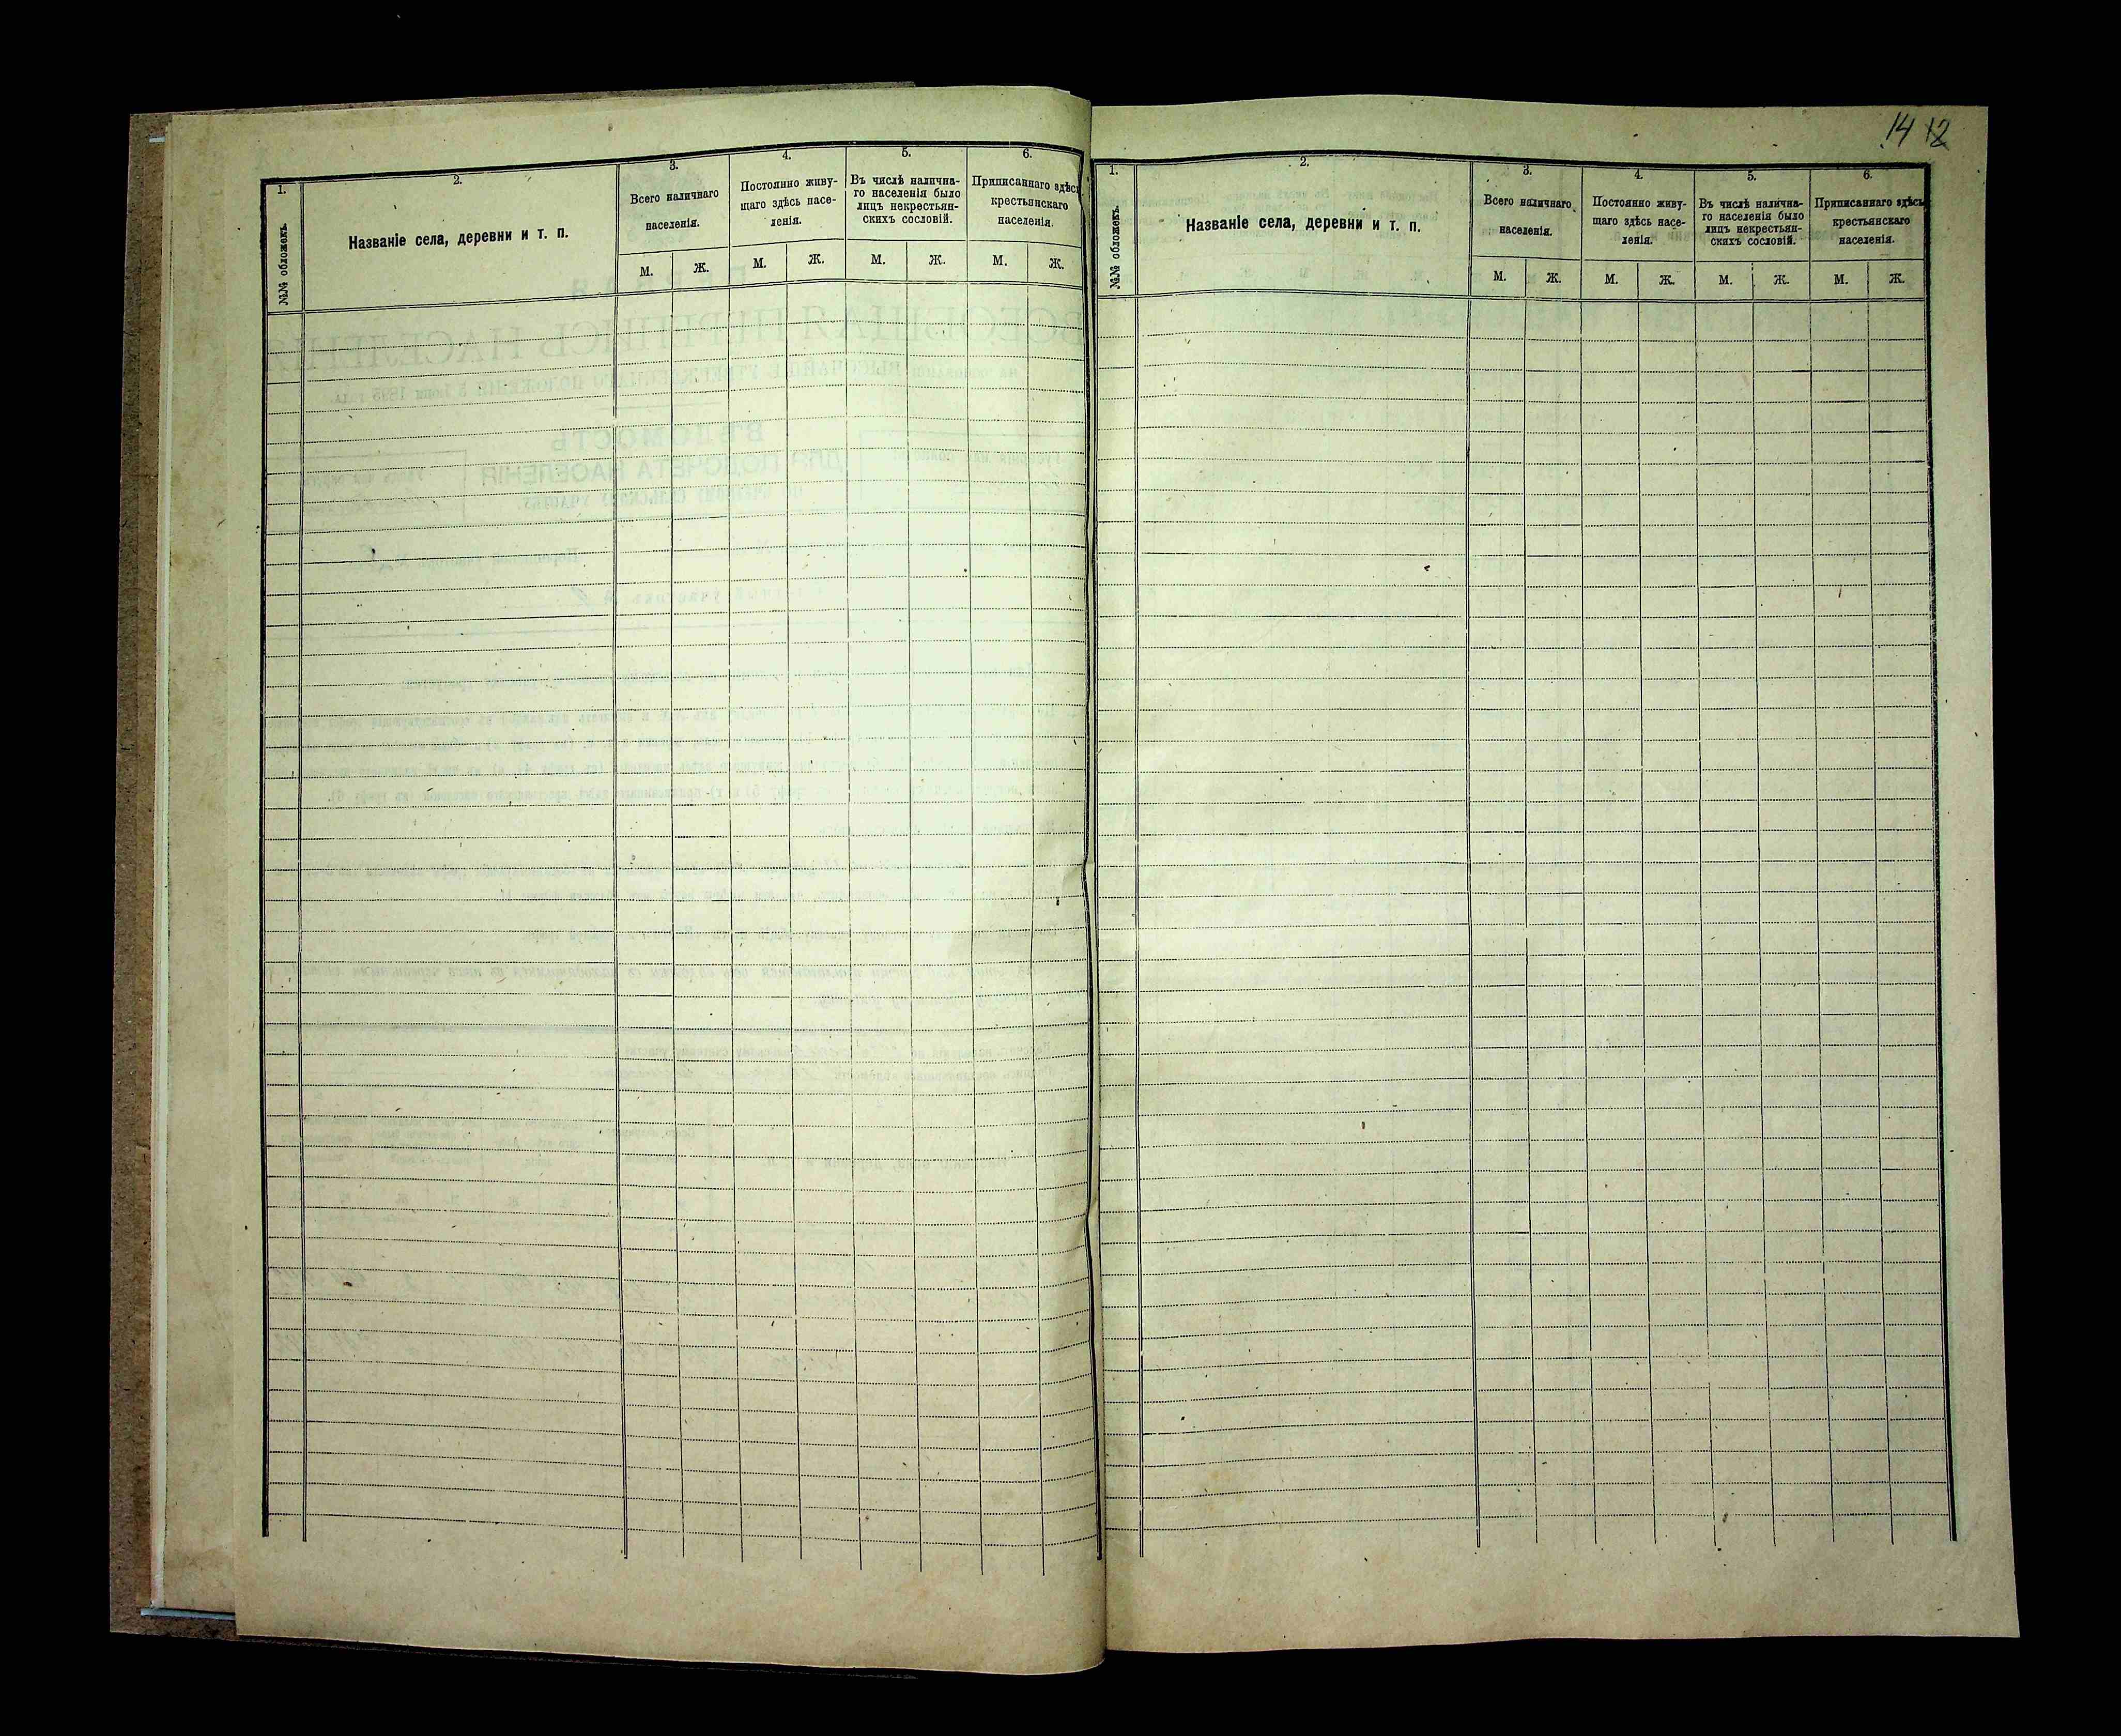 1.
2.
3.
4.
5.
6.
№№ обложекъ.
Названіе села, деревни и т. п.
Всего наличнаго
населенія.
Постоянно живу-
щаго здѣсь насе-
ленія.
Въ числѣ налична-
го населенія было
лицъ некрестьян-
скихъ сословій.
Приписаннаго здѣсь
крестьянскаго
населенія.
М. Ж. М. Ж. М. Ж. М. Ж.
14 12
1.
2.
3.
4.
5.
6.
№№ обложекъ.
Названіе села, деревни и т. п.
Всего наличнаго
населенія.
Постоянно живу-
щаго здѣсь насе-
ленія.
Въ числѣ налична-
го населенія было
лицъ некрестьян-
скихъ сословій.
Приписаннаго здѣсь
крестьянскаго
населенія.
М. Ж. М. Ж. М. Ж. М. Ж.